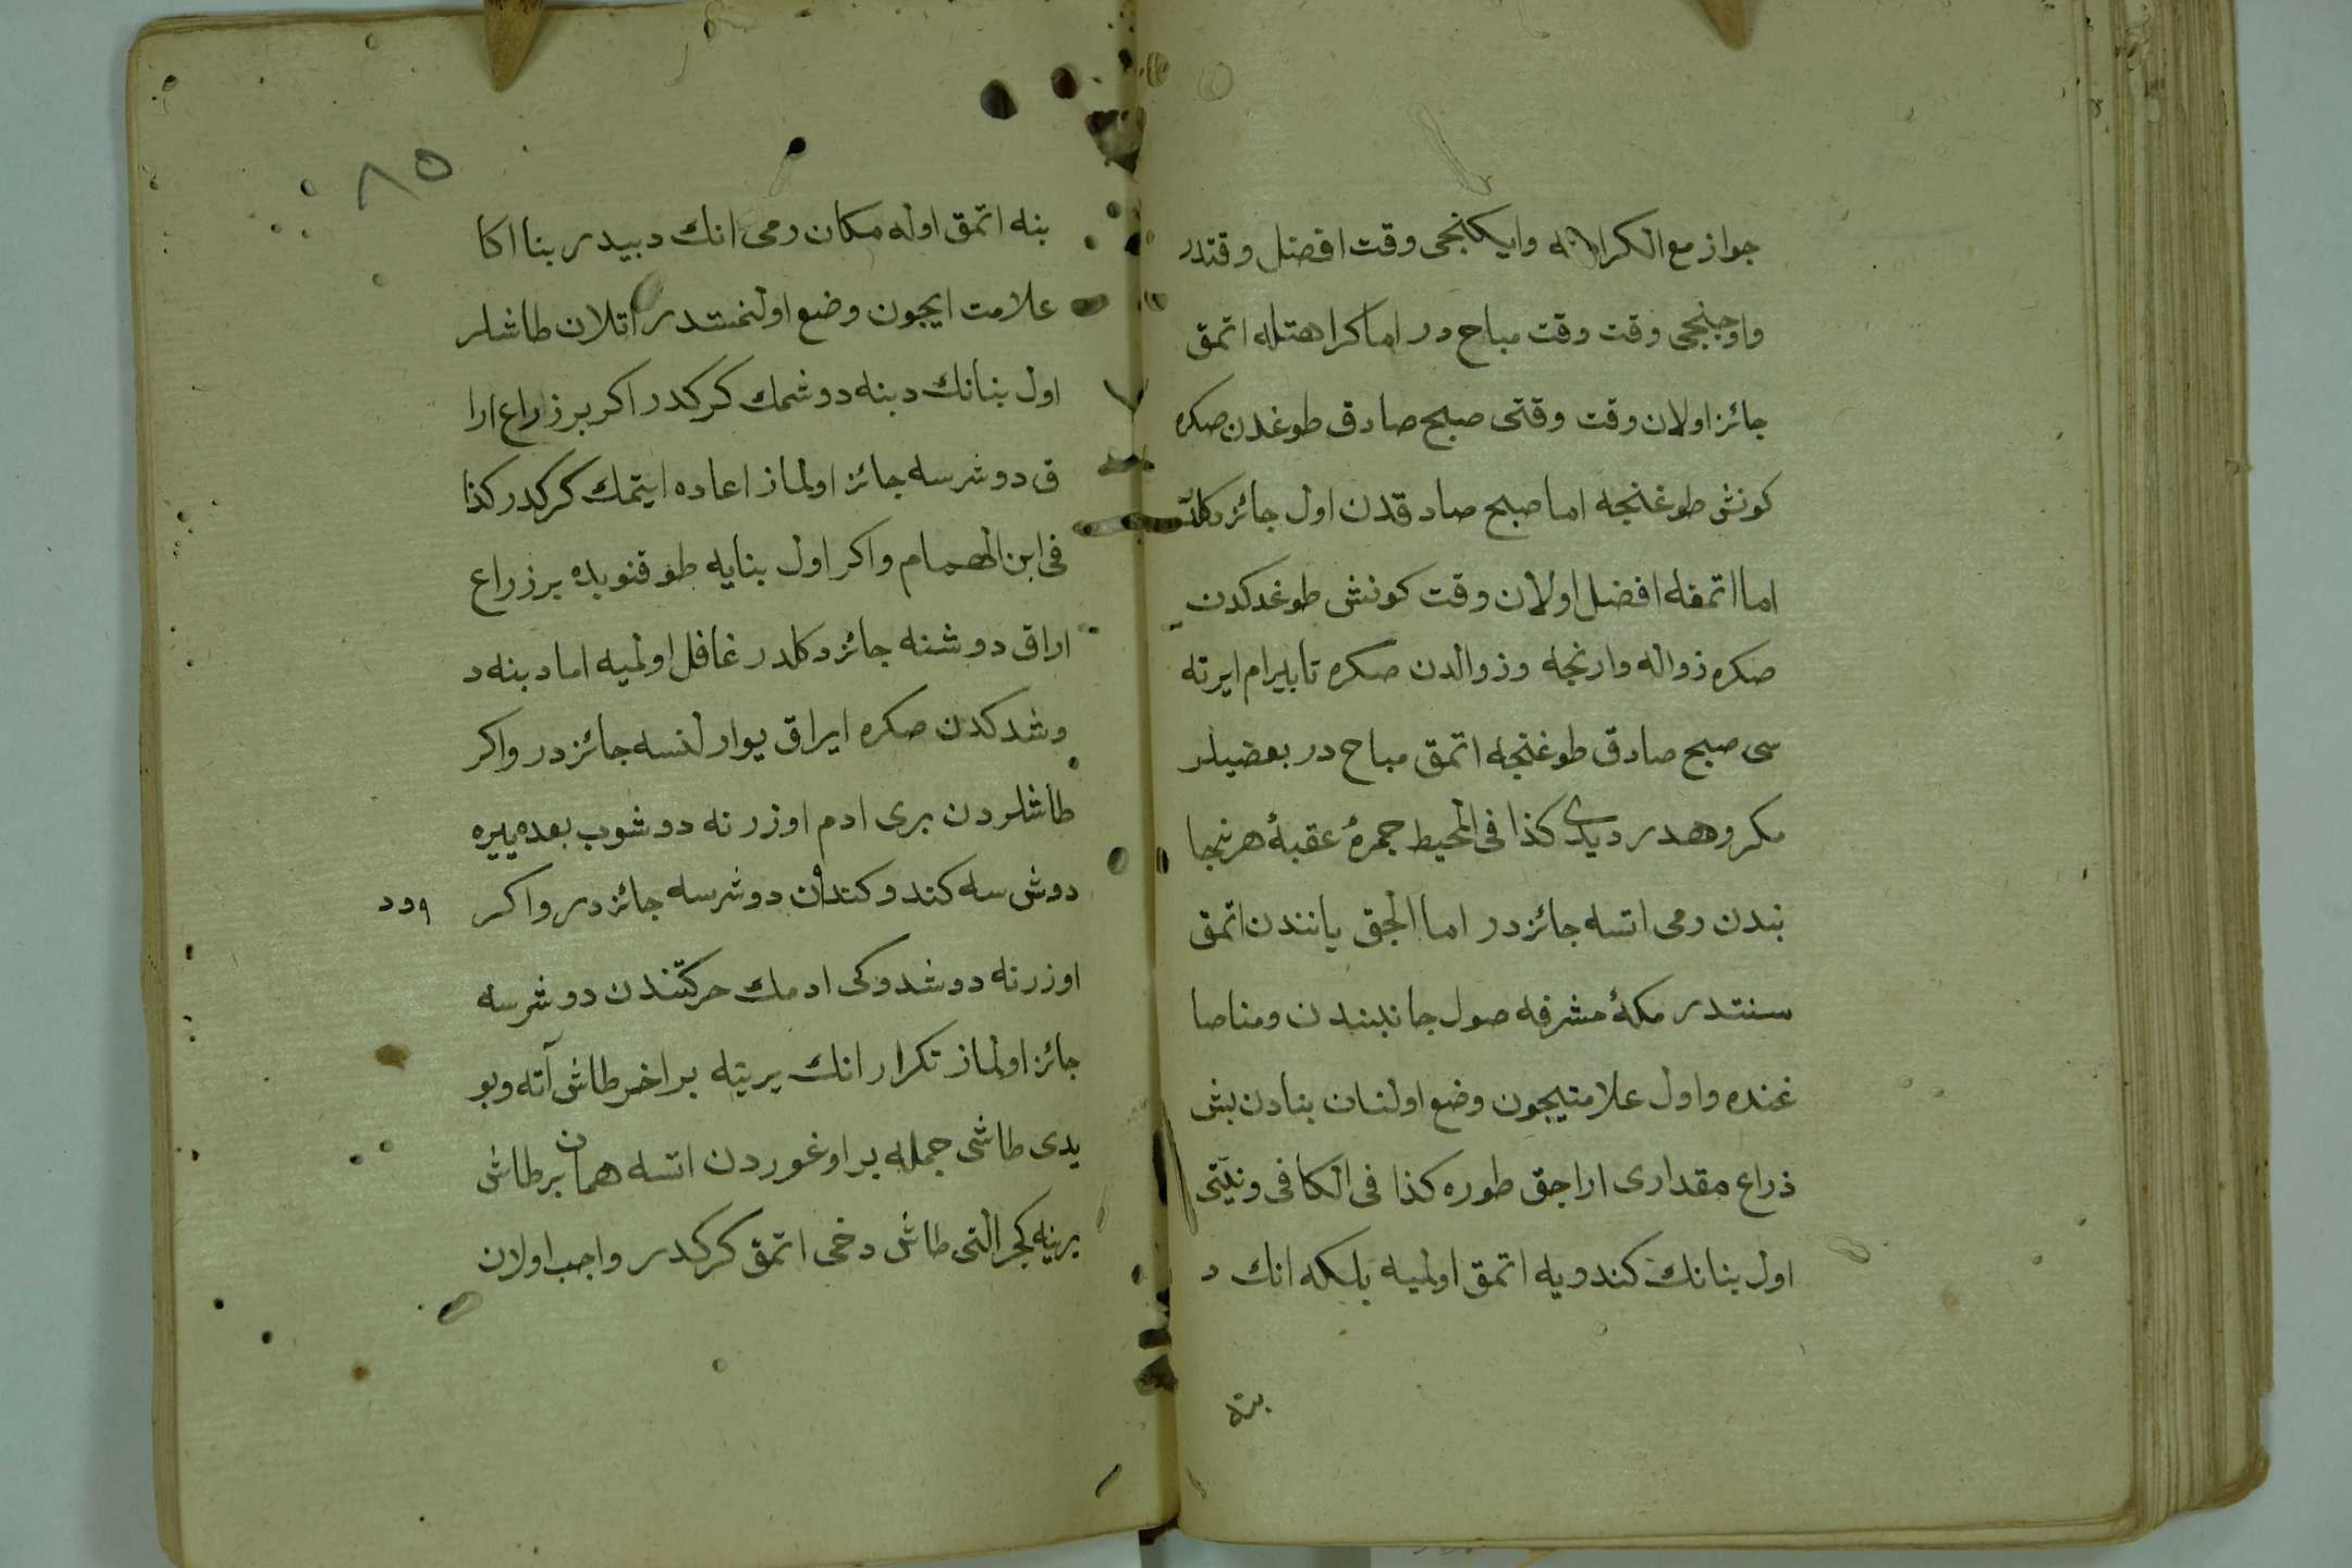 جواز مع الكراهه وايكنجى وقت افضل وقتدر
واوچنجى وقت وقت مباح در اما كراهتله اتمق
جائز اولان وقت وقتى صبح صادق طوغدن صكره
كونش طوغنجه اما صبح صادقدن اول جائز دكلدر
اما اتمقله افضل اولان وقت كونش طوغدكدن
صكره زواله وارنجه وزوالدن صكره تا بيرام ايرته
سى صبح صادق طوغنجه اتمق مباح در بعضيلر
مكروهدر ديدى كذا فى المحيط جمرهٔ عقبهٔ هر نجا
نبدن رمى اتسه جائزدر اما الچق يانندن اتمق
سنتدر مكهٔ مشرفه صول جانبندن ومنا صا
غنده واول علامتيچون وضع اولنان بنادن بش
ذراع مقدارى اراجق طوره كذا فى الكافى ونيّتى
اول بنانك كندويه اتمق اولميه بلكه انك د
بنه
٨٥
بنه اتمق اوله مكان رمى انك دبيدر بنا اكا
علامت ايچون وضع اولنمشدر اتلان طاشلر
اول بنانك دبنه دوشمك كركدر اكر بر زراع ارا
ق دوشرسه جائز اولماز اعاده ايتمك كركدر كذا
فى ابن الهمام واكر اول بنايه طوقنوبده بر زراع
اراق دوشنه جائز دكلدر غافل اولميه اما دبنه د
وشدكدن صكره ايراق يوارلنسه جائزدر واكر
طاشلردن برى ادم اوزرنه دوشوب بعده ييره
دوش سه كندوكندن دوشرسه جائزدر واكر
اوزرنه دوشدوكى ادمك حركتندن دوشرسه
جائز اولماز تكرار انك يرينه بر اخر طاش آته وبو
يدى طاشى جمله بر اوغوردن اتسه همان بر طاش
يرينه كچر التى طاش دخى اتمق كركدر واجب اولان